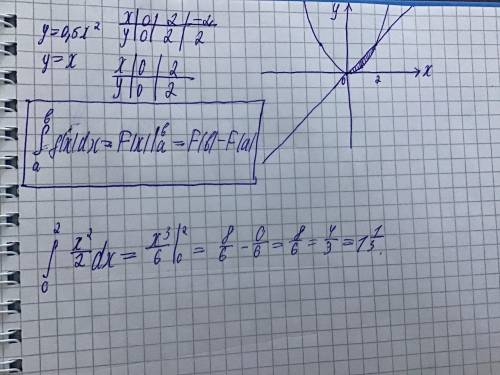 y=0,5x²
x | 0 | 2 | -2
y | 0 | 2 | 2
y=x
x | 0 | 2
y | 0 | 2
y
x
0
2
∫ₐᵇ f(x)dx = F(x)|ₐᵇ = F(b) - F(a)
∫₀² x²/2 dx = x³/6 |₀² = 8/6 - 0/6 = 8/6 = 4/3 = 1 1/3.